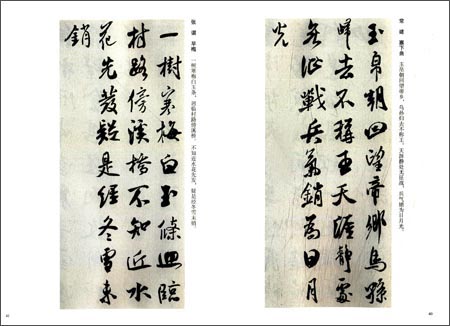 常建 塞下曲 玉帛朝回望帝乡,乌孙归去不称王。天涯静处无征战,兵气销为日月光。
玉帛朝回望帝鄉烏孫
歸去不稱王天涯靜處
無征戰兵氣銷為日月
光
40
张谓 早梅 一树寒梅白玉条,迥临村路傍溪桥。不知近水花先发,疑是经冬雪未销。
一樹寒梅白玉條迥臨
村路傍溪橋不知近水
花先發疑是經冬雪未
銷